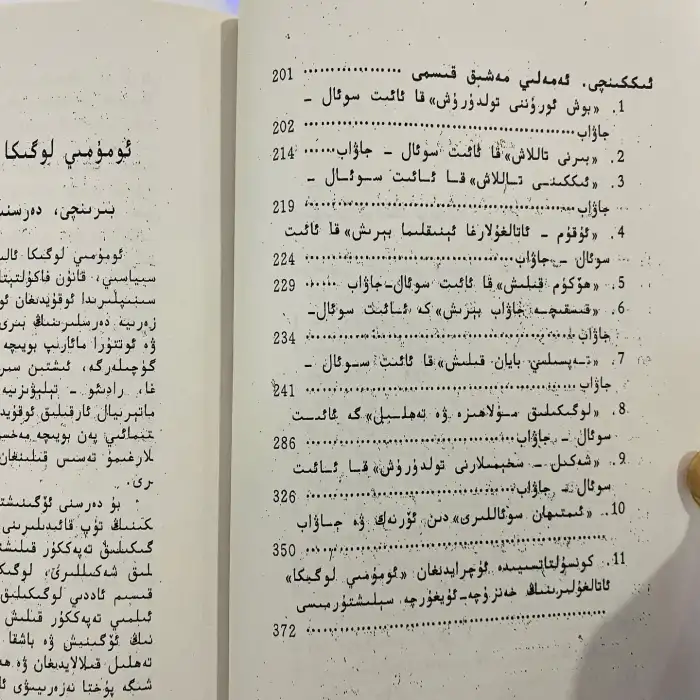 ئىككىنچى، ئەمەلىي مەشىق قىسمى ·················· 201
1. «بوش ئورۇننى تولدۇرۇش» قا ئائىت سوئال –
جاۋاب ·················· 202
2. «بىرنى تاللاش» قا ئائىت سوئال – جاۋاب ········ 214
3. «ئىككىنى تاللاش» قا ئائىت سوئال –
جاۋاب ·················· 219
4. «ئۇقۇم – ئاتالغۇلارغا ئېنىقلىما بېرىش» قا ئائىت
سوئال – جاۋاب ·················· 224
5. «ھۆكۈم قىلىش» قا ئائىت سوئال–جاۋاب ······ 229
6. «قىسقىچە جاۋاب بېرىش» كە ئائىت سوئال–
جاۋاب ·················· 234
7. «تەپسىلىي بايان قىلىش» قا ئائىت سوئال –
جاۋاب ·················· 241
8. «لوگىكىلىق مۇلاھىزە ۋە تەھلىل» گە ئائىت
سوئال – جاۋاب ·················· 286
9. «شەكىل – سخېمىلارنى تولدۇرۇش» قا ئائىت
سوئال – جاۋاب ·················· 326
10. «ئىمتىھان سوئاللىرى» دىن ئۆرنەك ۋە جاۋاب
·················· 350
11. كونسۇلتاتسىيىدە ئۇچرايدىغان «ئومۇمىي لوگىكا»
ئاتالغۇلىرىنىڭ خەنزۇچە–ئۇيغۇرچە سېلىشتۇرمىسى
·················· 372
ئومۇمىي لوگىكا
بىرىنچى، دەرسنى
ئومۇمىي لوگىكا ئالىي
سىياسىي، قانۇن فاكۇلتېتى
سىنىپلىرىدا ئوقۇيدىغان ئو
زەرىيە دەرسلىرىنىڭ بىرى
ۋە ئوتتۇرا مائارىپ بويىچە
گۈچىلەرگە، ئىشتىن سىر
غا، رادىئو – تېلېۋىزىيە
ماتېرىيال ئارقىلىق ئوقۇيد
ئىجتىمائىي پەن بويىچە مەخس
لارغىمۇ تەسىس قىلىنغان
رى.
بۇ دەرسنى ئۆگىنىشت
كىنىڭ تۈپ قائىدىلىرىنى
گىكىلىق تەپەككۇر قىلىشت
لىق شەكىللىرى، لوگىك
قىسىم ئاددىي لوگىكىلىق
ئىلمىي تەپەككۇر قىلىش
نىڭ ئۆگىنىش ۋە باشقا
تەھلىل قىلالايدىغان ۋە ھە
شىگە پۇختا نەزەرىيىۋى ئا